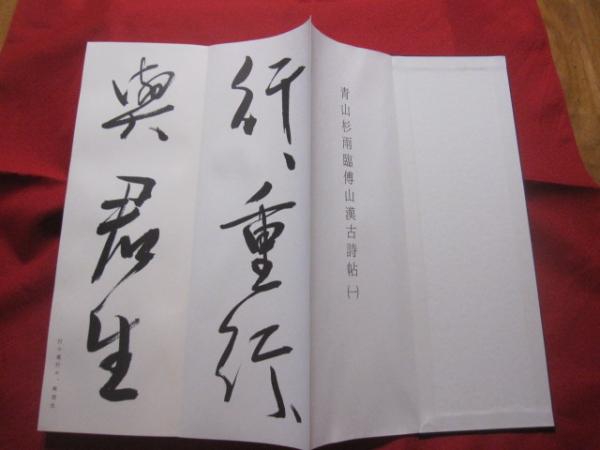 青山杉雨臨傅山漢古詩帖(一)
行々重行々
與君生
行々重行々、與君生